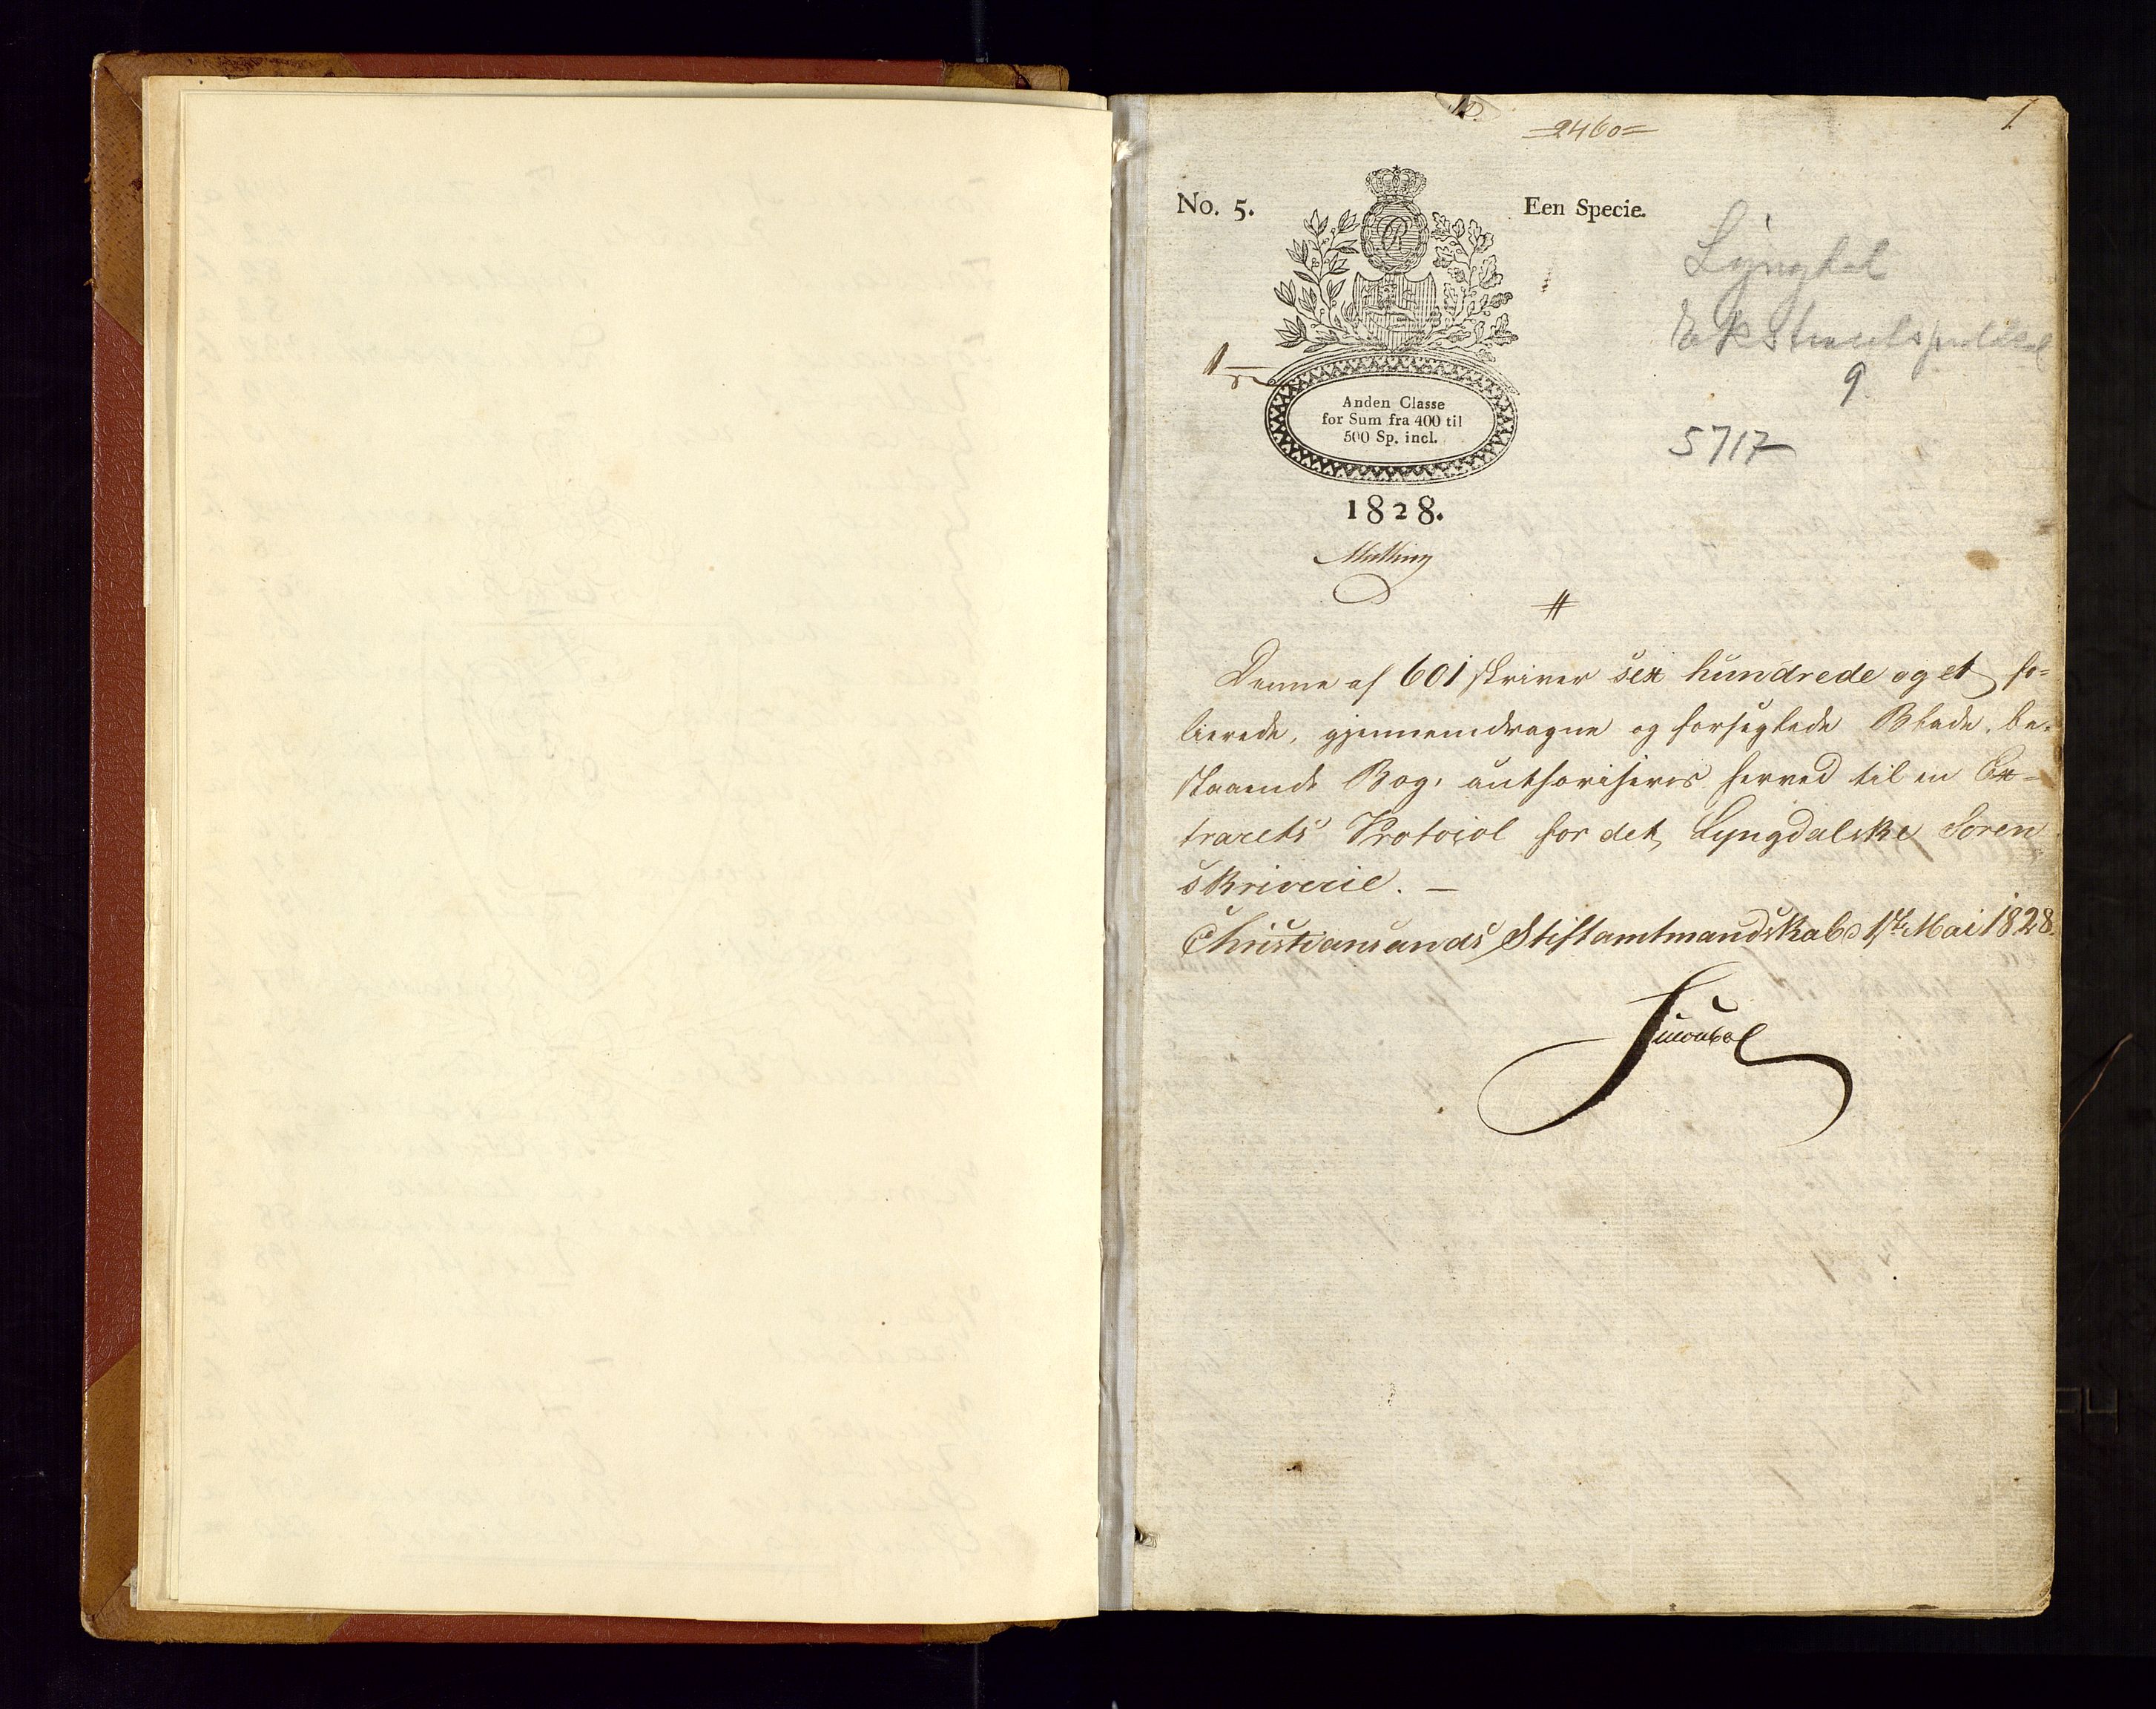 =2460=
1
No. 5.
Een Specie.
Lyngdal
Ekstraretsprotokol
9
5717
Anden Classe
for Sum fra 400 til
500 Sp. incl.
1828.
#
Denne af 601 skriver sex hundrede og et fo-
lierede, gjennemdragne og forseglede Blade, be-
staaende Bog, authoriseres herved til en Ex-
trarets Protocol for det Lyngdalske Soren
skriverie. —
Christiansands Stiftamtmandskab d 1ste Mai 1828.